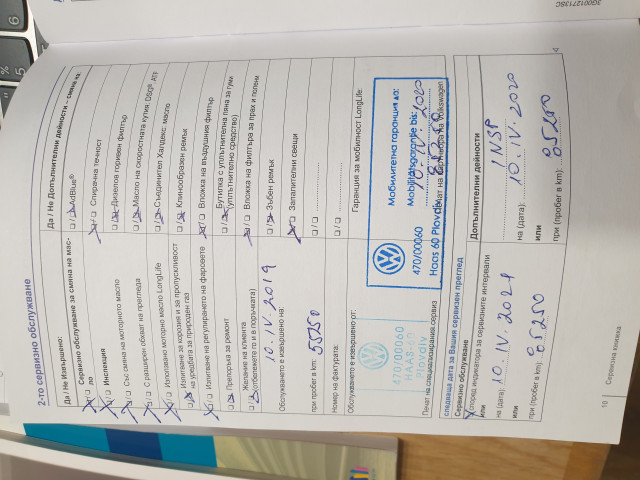 3G0012713SC
2-ро сервизно обслужване
Да / Не Извършено:
Сервизно обслужване за смяна на масло
Инспекция
Със смяна на моторното масло
С разширен обхват на прегледа
Използвано моторно масло LongLife
Изпитване за корозия и за пропускливост на уредбата за природен газ
Изпитване на регулирането на фаровете
Препоръка за ремонт
Желание на клиента
(отбележете го и в поръчката)
Обслужването е извършено на: 10.IV.2019
при пробег в km: 55250
Номер на фактурата:
Обслужването е извършено от:
470/00060
HAAS-60
Plovdiv
Печат на специализирания сервиз
Да / Не Допълнителни дейности – смяна на:
AdBlue®
Спирачна течност
Дизелов горивен филтър
Масло на скоростната кутия, DSg®, ATF
Съединител Халдекс: масло
Клинообразен ремък
Вложка на въздушния филтър
Бутилка с уплътнителна пяна за гуми
(уплътнително средство)
Вложка на филтъра за прах и полени
Зъбен ремък
Запалителни свещи
Гаранция за мобилност LongLife:
Мобилитетна гаранция до:
Mobilitätsgarantie bis:
10.IV.2020
470/00060
Haas 60 Plovdiv
на Volkswagen
следваща дата за Вашия сервизен преглед
Сервизно обслужване
(според индикатора за сервизните интервали
или
на (дата) 10.IV.2021
или
при (пробег в km): 85250
Допълнителни дейности
INSP
на (дата): 10.IV.2020
или
при (пробег в km): 85250
10
Сервизна книжка